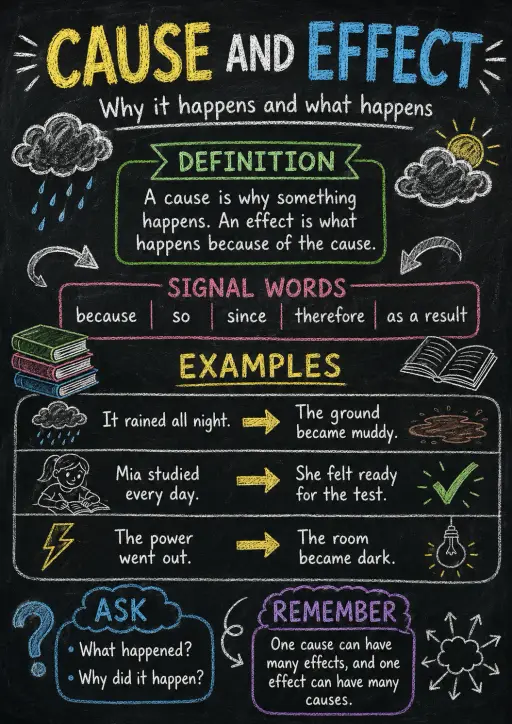 CAUSE AND EFFECT
Why it happens and what happens
DEFINITION
A cause is why something
happens. An effect is what
happens because of the cause.
SIGNAL WORDS
because | so | since | therefore | as a result
EXAMPLES
It rained all night.
The ground
became muddy.
Mia studied
every day.
She felt ready
for the test.
The power
went out.
The room
became dark.
?
ASK
• What happened?
• Why did it happen?
REMEMBER
One cause can have
many effects, and one
effect can have many
causes.